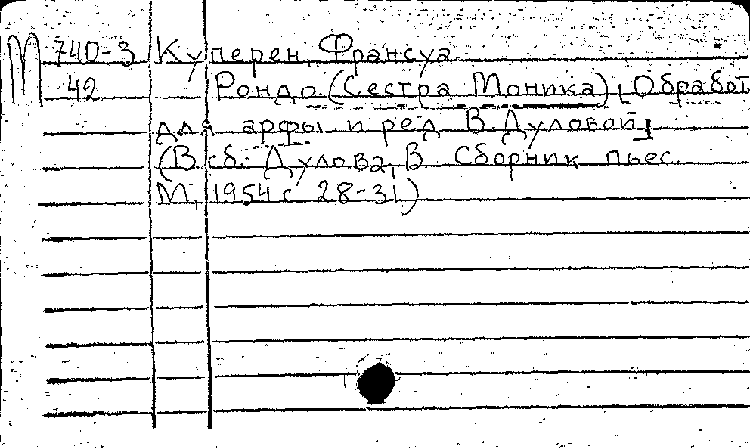 М 740-3 Куперен, Франсуа
42 Рондо (Сестра Моника) [Обработ
для арфы и ред В. Дуловой]
(В сб: Дулова, В Сборник пьес
М, 1954 с 28-31)